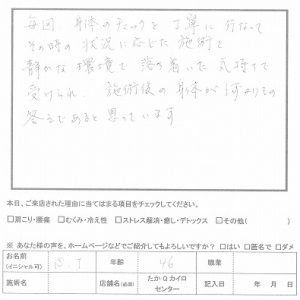 毎回 身体のチェックを丁寧に行なって
その時の状況に応じた施術と
静かな環境で落ち着いた気持ちで
受けられ、施術後の身体が1番よりもの
答えであると思っています
本日、ご来店された理由に当てはまる項目をチェックしてください。
□肩こり・腰痛 □むくみ・冷え性 □ストレス解消・癒し・デトックス □その他( )
※ あなた様の声を、ホームページなどでご紹介してもよろしいですか? □はい □匿名で □ダメ
お名前 (イニシャル可) 年齢 46 職業
施術名 店舗名(必須) たかQカイロセンター 記入日 年 月 日